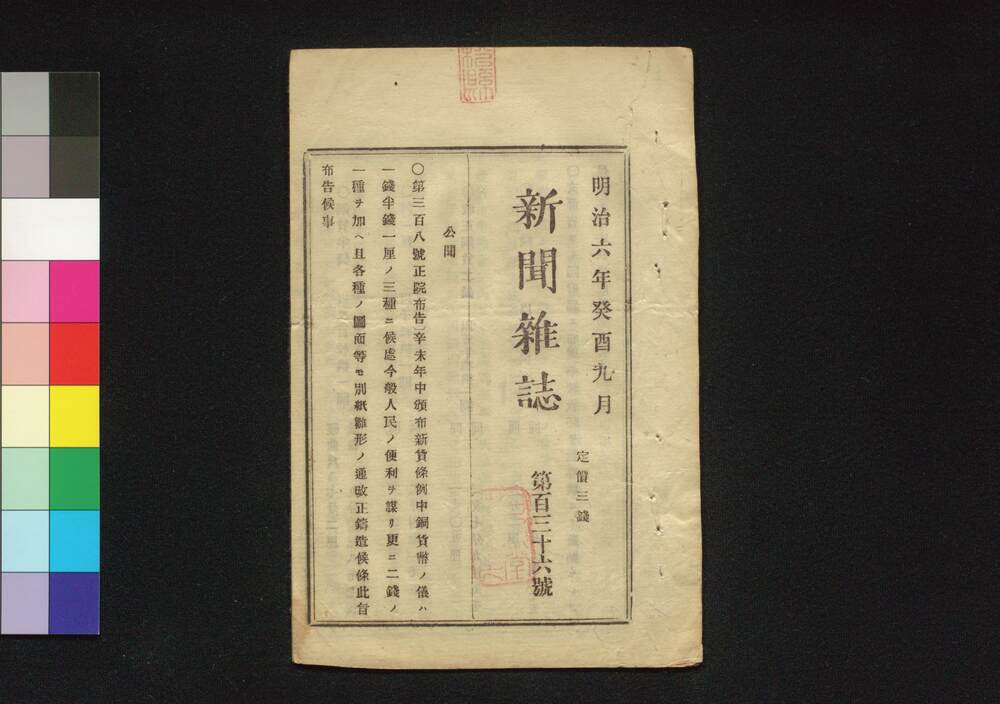 明治六年癸酉九月
定價三錢
新聞雜誌
第百三十六號
公聞
〇第三百八號正院布告辛未年中頒布新貨條例中銅貨幣ノ儀ハ
一錢半錢一厘ノ三種ニ候處今般人民ノ便利ヲ謀リ更ニ二錢ノ
一種ヲ加ヘ且各種ノ圖面等モ別紙雛形ノ通改正鑄造候條此旨
布告候事